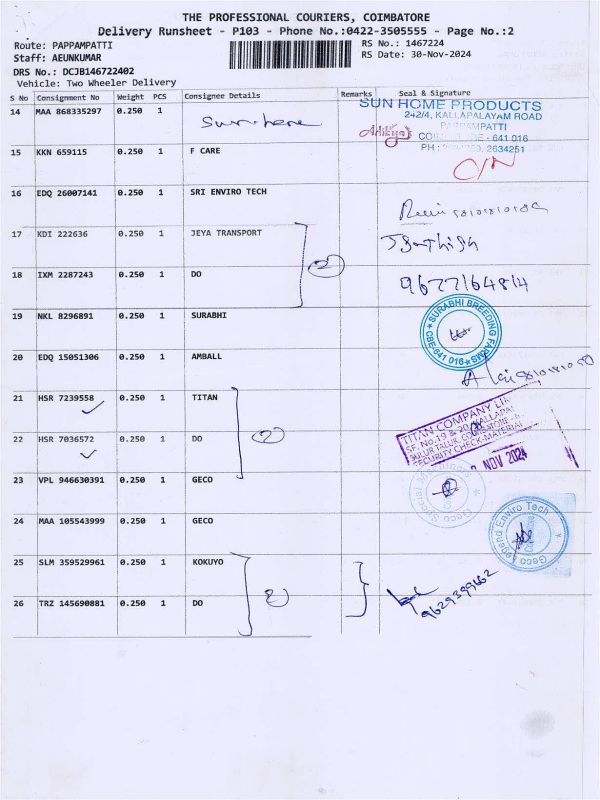 THE PROFESSIONAL COURIERS, COIMBATORE
Delivery Runsheet - P103 - Phone No.:0422-3505555 - Page No.:2
Route: PAPPAMPATTI
RS No.: 1467224
Staff: AEUNKUMAR
RS Date: 30-Nov-2024
DRS No.: DCJB146722402
Vehicle: Two Wheeler Delivery
S No Consignment No Weight PCS Consignee Details Remarks Seal & Signature
14 MAA 868335297 0.250 1
SUN HOME PRODUCTS
242/4, KALLAPALAYAM ROAD
PAPPAMPATTI
COIMBATORE - 641 016
PH : 2634251
15 KKN 659115 0.250 1 F CARE
16 EDQ 26007141 0.250 1 SRI ENVIRO TECH
17 KDI 222636 0.250 1 JEYA TRANSPORT
18 IXM 2287243 0.250 1 DO 9677164814
19 NKL 8296891 0.250 1 SURABHI
SURABHI BREEDING FARMS
CBE-641 016
20 EDQ 15051306 0.250 1 AMBALL
21 HSR 7239558 0.250 1 TITAN
TITAN COMPANY
SF. No. 19 & 20
SULUR TALUK, COIMBATORE
SECURITY CHECK-MATERIAL
NOV 2024
22 HSR 7036572 0.250 1 DO
23 VPL 946630391 0.250 1 GECO
24 MAA 105543999 0.250 1 GECO
Geco Legend Enviro Tech
25 SLM 359529961 0.250 1 KOKUYO
26 TRZ 145690881 0.250 1 DO
9629399662